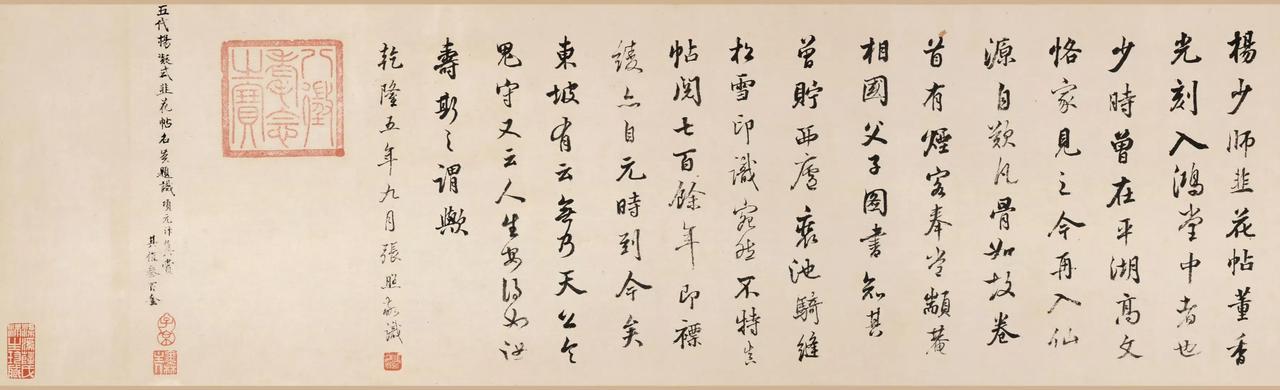 楊少師韭花帖董香
光刻入鴻堂中者也
少時曾在平湖高文
恪家見之今再入仙
源自歎凡骨如故卷
首有煙客奉常顓菴
相國父子圖書知其
曾貯西廬裏池騎縫
松雪印識宛然不特真
帖閱七百餘年即褾
綾亦自元時到今矣
東坡有云無乃天公令
鬼守又云人生安得如汝
壽斯之謂歟
乾隆五年九月張照敬識
八徵耄念之寶
五代楊凝式韭花帖名賢題識項元汴真賞
其值叁百金
子京